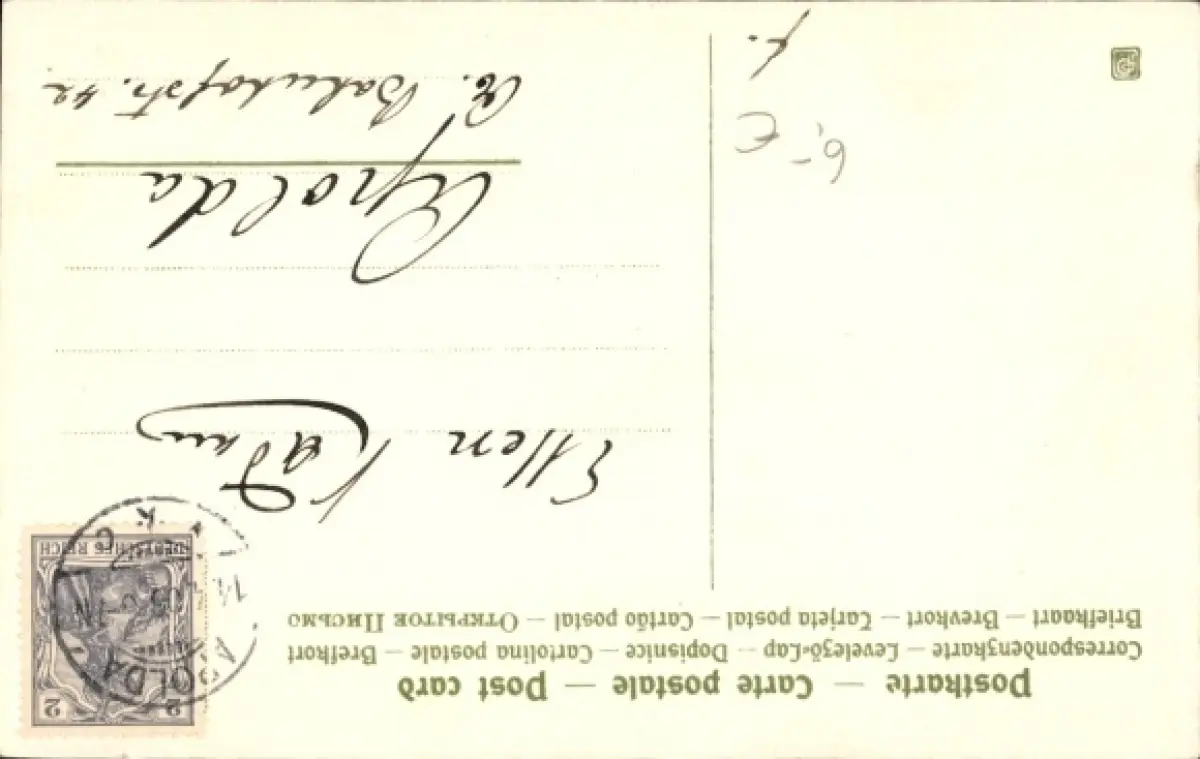 Postkarte — Carte postale — Post card
Correspondenzkarte — Levelező-Lap — Dopisnice — Cartolina postale — Brefkort
Briefkaart — Brevkort — Tarjeta postal — Cartão postal — Открытое Письмо
2 2
DEUTSCHES REICH
APOLDA
Ellen
Apolda
Bahnhofstr. 42
6,- €